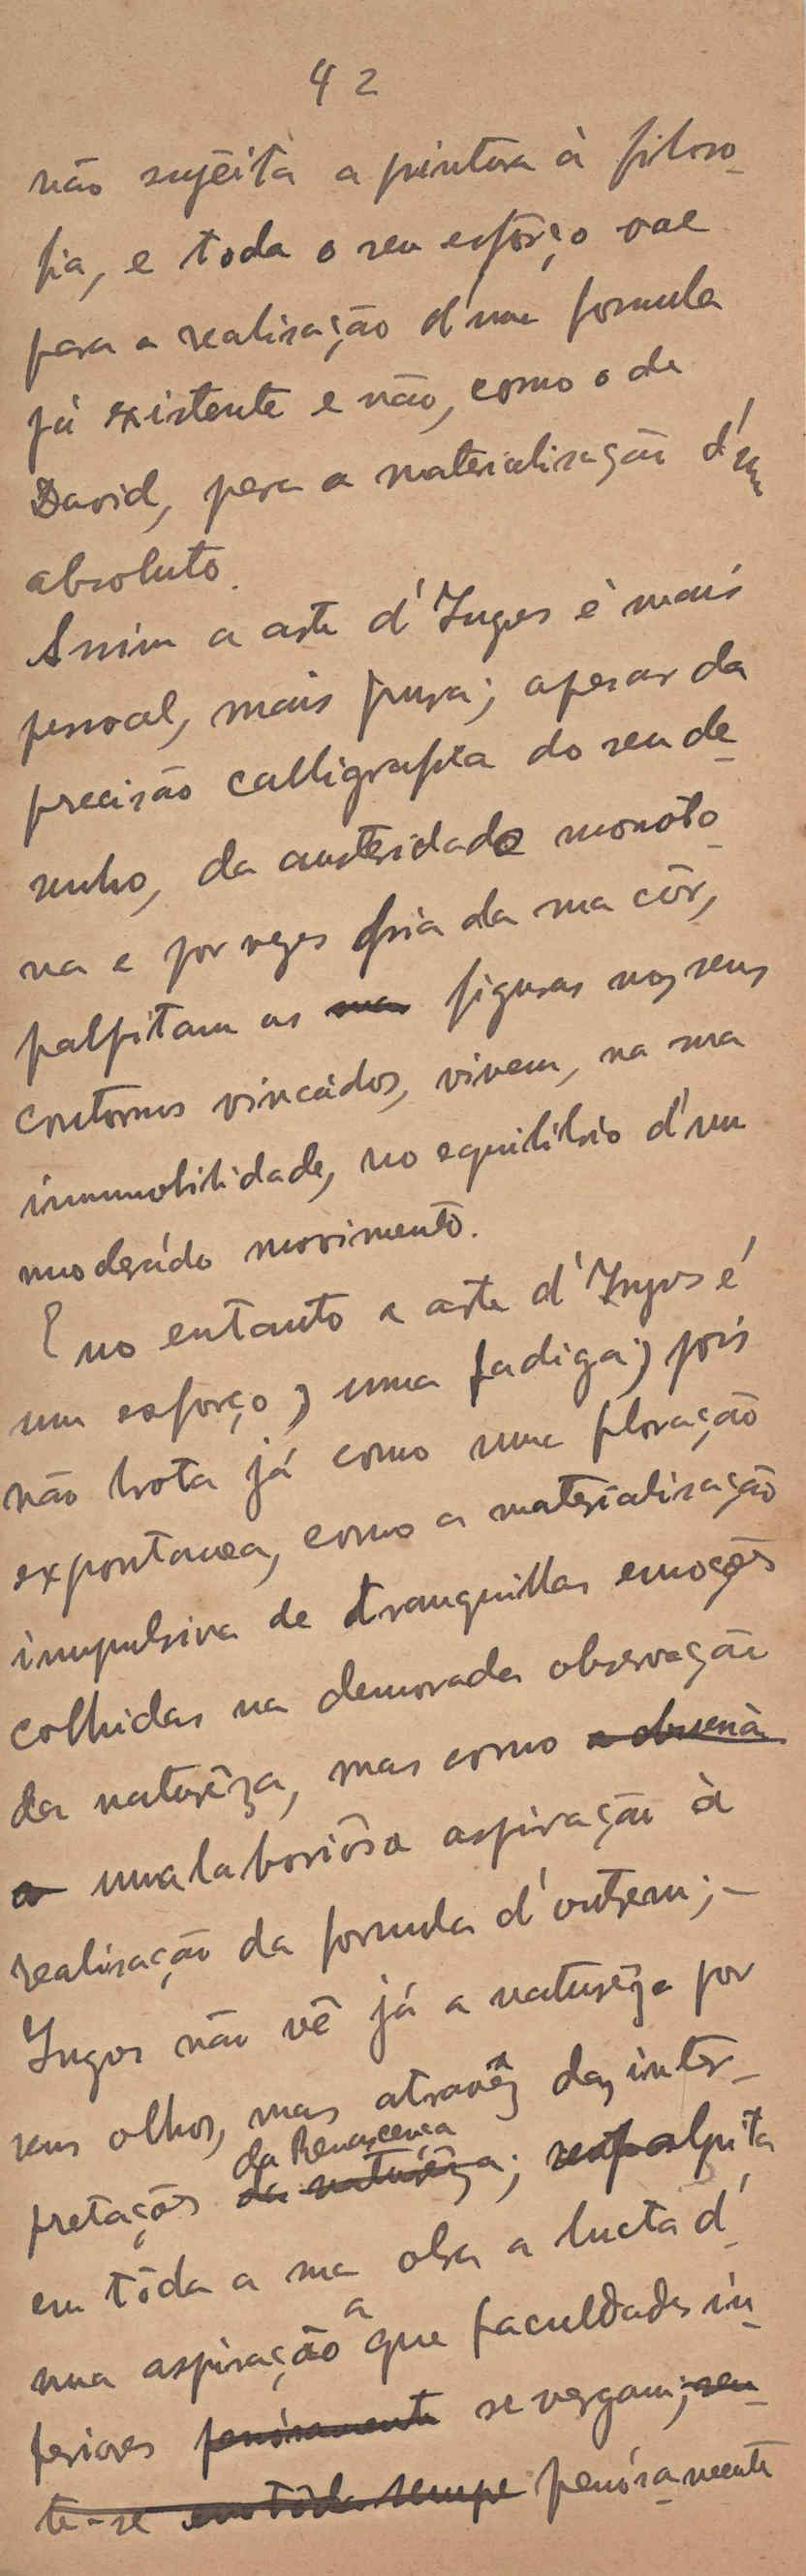 42
não sujeita a pintura à filoso-
fia, e toda o seu esforço vae
para a realisação d'uma formula
já existente e não, como o de
David, para a materialisação d'um
absoluto.
Assim a arte d'Ingres é mais
pessoal, mais pura; apesar da
precisão calligrafica do seu de-
senho, da austeridade monóto-
na e por vezes fria da sua côr,
palpitam as sua figuras nos seus
contornos vincádos, vivem, na sua
immobilidade, no equilibrio d'um
moderádo movimento.
E no entanto a arte d'Ingres é
um esforço, uma fadiga; pois
não brota já como uma floração
expontanea, como a materialisação
impulsiva de tranquillas emoções
colhidas na demorada observação
da naturêza, mas como a obscena
a uma laboriósa aspiração à
realisação da formula d'outrem; -
Ingres não vê já a naturêza por
seus olhos, mas atravêz das inter-
da Renascença
pretações da naturêza; palpita
em tôda a sua obra a lucta d'
uma aspiração a que faculdades in-
feriores penósamente se vergam; sen-
te-se em tôda sempre penósamente